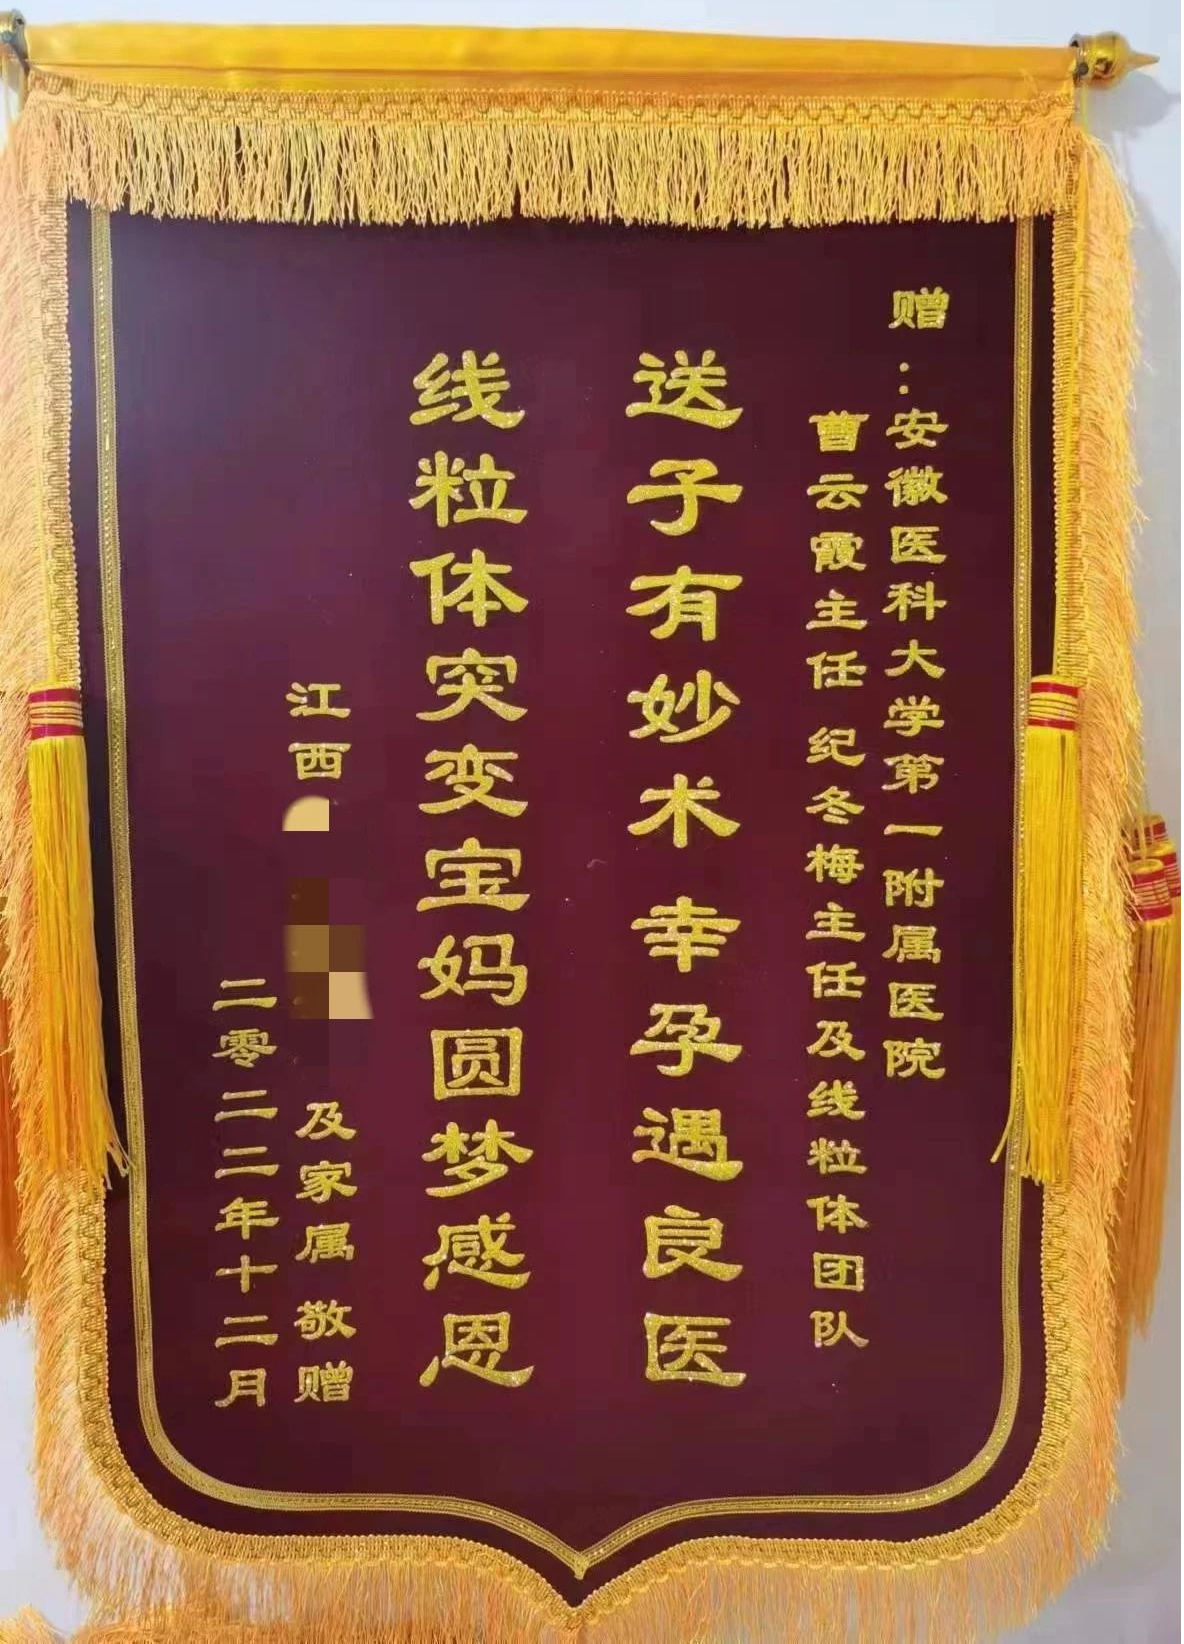 赠：安徽医科大学第一附属医院
曹云霞主任 纪冬梅主任及线粒体团队
送子有妙术 幸孕遇良医
线粒体突变宝妈圆梦感恩
江西 及家属 敬赠
二零二二年十二月